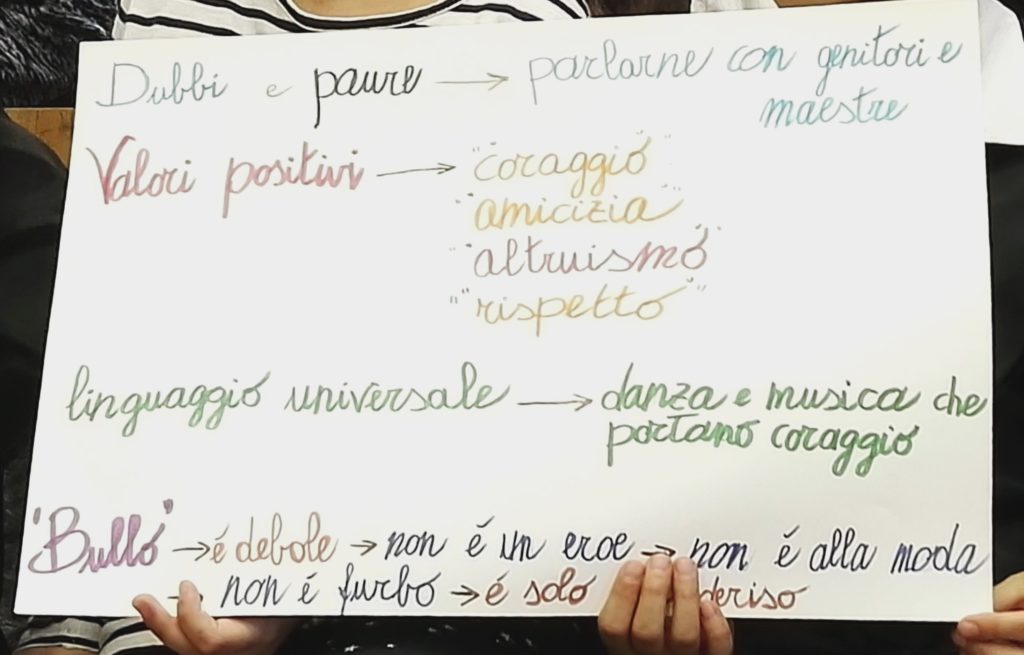 Dubbi e paure → parlarne con genitori e
maestre
Valori positivi → "coraggio"
"amicizia"
"altruismo"
"rispetto"
linguaggio universale → danza e musica che
portano coraggio
"Bullo" → é debole → non é un eroe → non é alla moda
→ non é furbo → é solo deriso